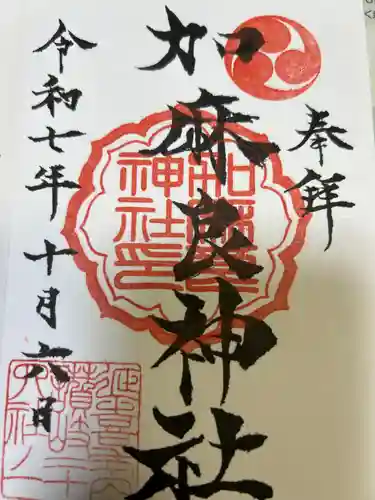 奉拝
加麻良神社
令和七年十月六日
加麻良
神社印